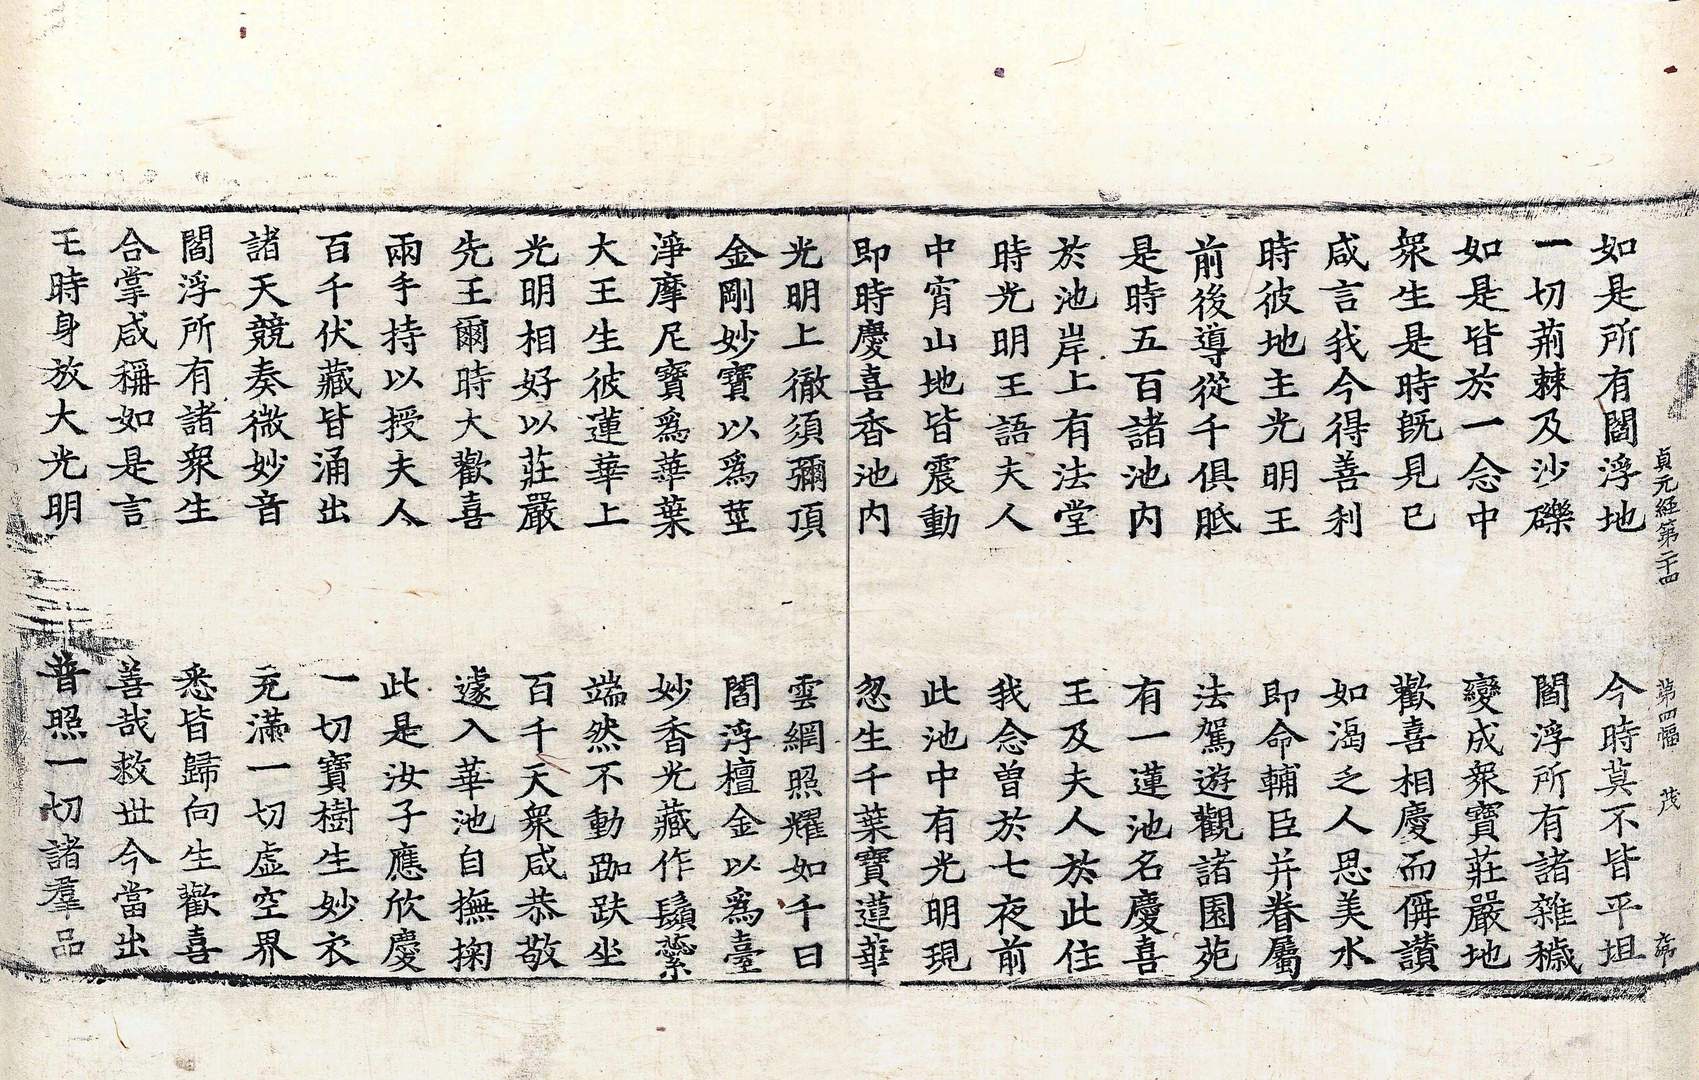 貞元經第二十四　第四幅　茂
如是所有閻浮地　今時莫不皆平坦
一切荊棘及沙礫　閻浮所有諸雜穢
如是皆於一念中　變成衆寶莊嚴地
衆生是時旣見已　歡喜相慶而偁讃
咸言我今得善利　如渴乏人思美水
時彼地主光明王　即命輔臣并眷屬
前後導從千俱胝　法駕遊觀諸園苑
是時五百諸池內　有一蓮池名慶喜
於池岸上有法堂　王及夫人於此住
時光明王語夫人　我念曽於七夜前
中宵山地皆震動　此池中有光明現
即時慶喜香池內　忽生千葉寶蓮華
光明上徹須彌頂　雲網照耀如千日
金剛妙寶以爲莖　閻浮檀金以爲臺
淨摩尼寶爲華葉　妙香光藏作鬚蘂
大王生彼蓮華上　端然不動跏趺坐
光明相好以莊嚴　百千天衆咸恭敬
先王爾時大歡喜　遽入華池自撫掬
兩手持以授夫人　此是汝子應欣慶
百千伏藏皆涌出　一切寶樹生妙衣
諸天競奏微妙音　充滿一切虛空界
閻浮所有諸衆生　悉皆歸向生歡喜
合掌咸稱如是言　善哉救世今當出
王時身放大光明　普照一切諸羣品